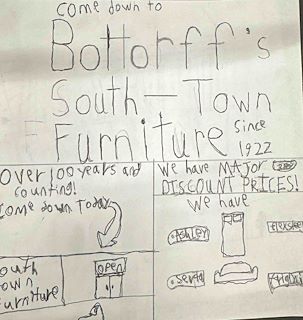 come down to
Bottorff's
South-Town
Furniture since
1922
Over 100 years and
counting!
Come down Today
open
outh
own
urniture
We have MAJOR
DISCOUNT PRICES!
We have
Ashley
Flexsteel
Serta